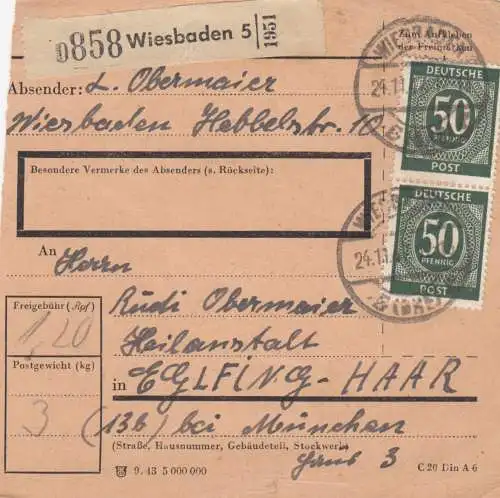 D858 Wiesbaden 5 1951
Zum Aufkleben
der Freimarken
Absender: L. Obermaier
Wiesbaden Hebbelstr. 10
Besondere Vermerke des Absenders (s. Rückseite):
DEUTSCHE
50
PFENNIG
POST
DEUTSCHE
50
PFENNIG
POST
24.11.
24.11.
An
Herrn
Rudi Obermaier
Heilanstalt
in EGLFING-HAAR
(13b) bei München
(Straße, Hausnummer, Gebäudeteil, Stockwerk)
Haus 3
Freigebühr (Rpf)
1,20
Postgewicht (kg)
3
9. 43 5 000 000
C 20 Din A 6